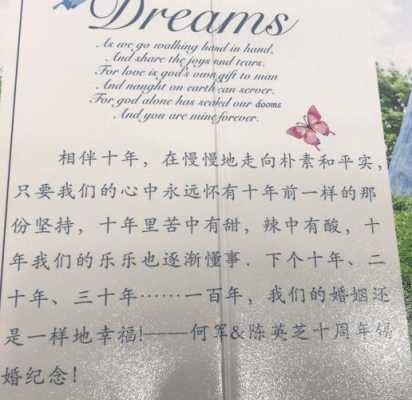 Dreams
As we go walking hand in hand,
And share the joys and tears.
For love is god's own gift to man
And naught on earth can server.
For god alone has sealed our dooms
And you are mine forever.
相伴十年，在慢慢地走向朴素和平实，
只要我们的心中永远怀有十年前一样的那
份坚持，十年里苦中有甜，辣中有酸，十
年我们的乐乐也逐渐懂事．下个十年、二
十年、三十年……一百年，我们的婚姻还
是一样地幸福!——何军&陈英芝十周年锡
婚纪念!